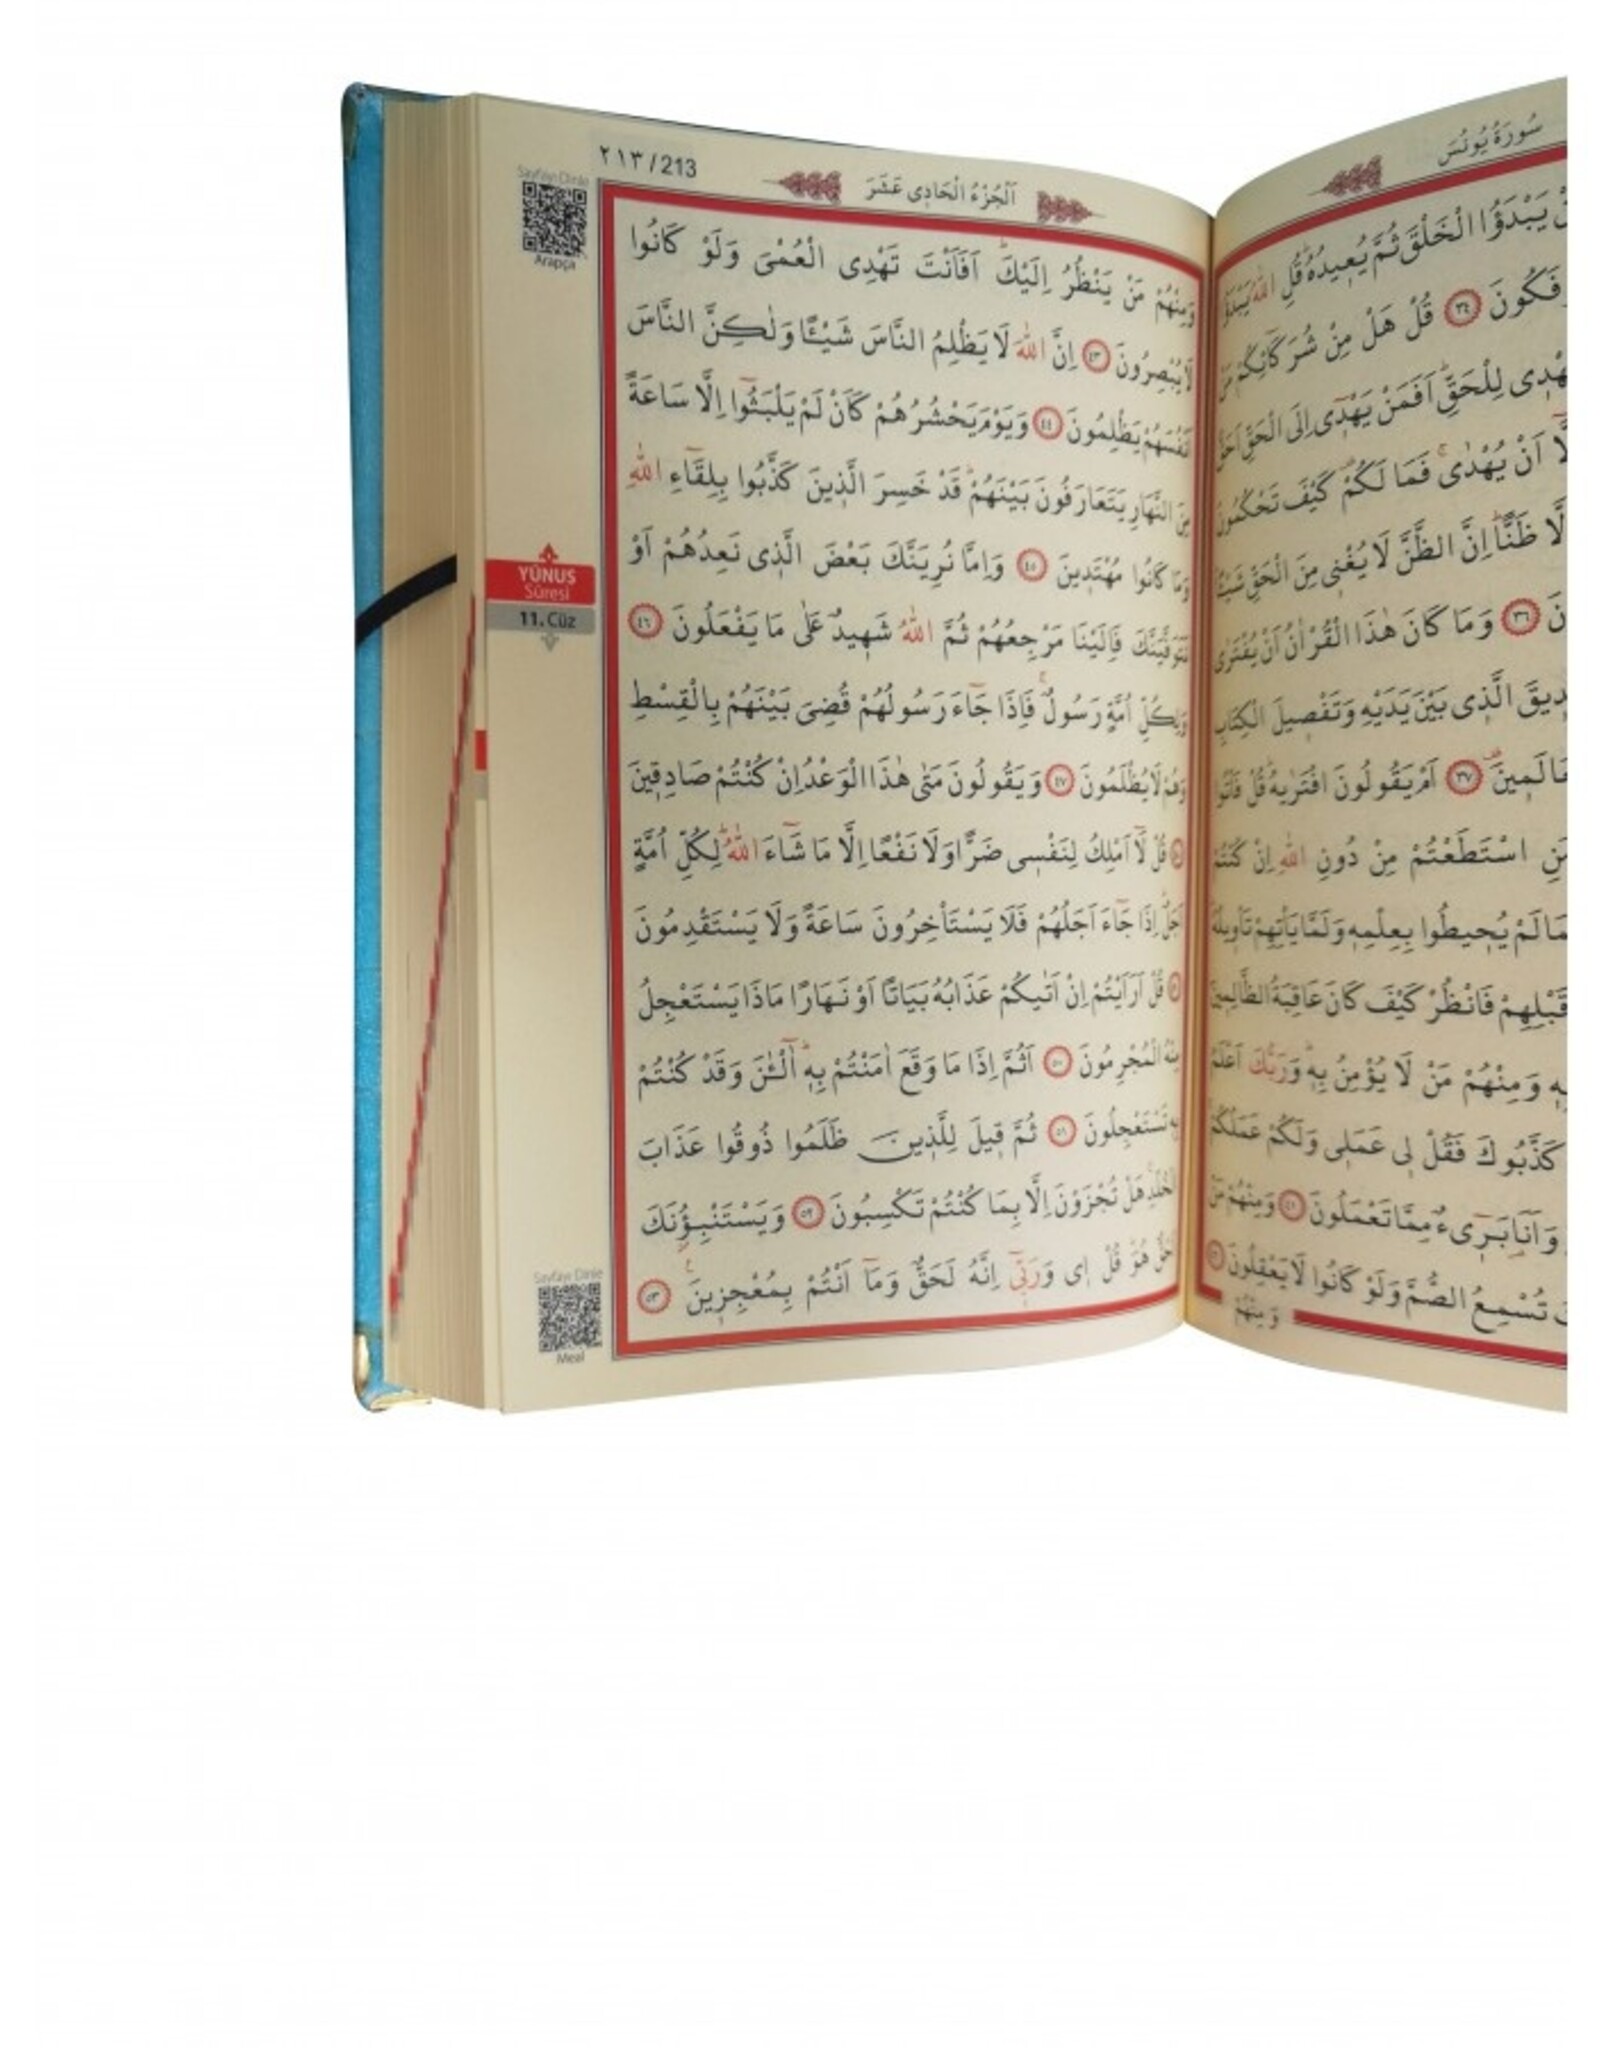 سُورَةُ يُونُسَ
يَبْدَؤُا الْخَلْقَ ثُمَّ يُعِيدُهُ قُلِ اللّٰهُ يَبْدَؤُا
قُلْ هَلْ مِنْ شُرَكَائِكُمْ مَنْ ﴿٣٤﴾
لِلْحَقِّ اَفَمَنْ يَهْدِى اِلَى الْحَقِّ اَحَقُّ
اَنْ يُهْدٰى فَمَا لَكُمْ كَيْفَ تَحْكُمُونَ
ظَنًّا اِنَّ الظَّنَّ لَا يُغْنِى مِنَ الْحَقِّ شَيْئًا
﴿٣٦﴾ وَمَا كَانَ هٰذَا الْقُرْاٰنُ اَنْ يُفْتَرٰى
الَّذِى بَيْنَ يَدَيْهِ وَتَفْصِيلَ الْكِتَابِ
﴿٣٧﴾ اَمْ يَقُولُونَ افْتَرٰيهُ قُلْ فَأْتُوا
اسْتَطَعْتُمْ مِنْ دُونِ اللّٰهِ اِنْ كُنْتُمْ
لَمْ يُحِيطُوا بِعِلْمِهِ وَلَمَّا يَأْتِهِمْ تَأْوِيلُهُ
قَبْلِهِمْ فَانْظُرْ كَيْفَ كَانَ عَاقِبَةُ الظَّالِمِينَ
وَمِنْهُمْ مَنْ لَا يُؤْمِنُ بِهِ وَرَبُّكَ اَعْلَمُ
كَذَّبُوكَ فَقُلْ لِى عَمَلِى وَلَكُمْ عَمَلُكُمْ
وَاَنَا بَرِىءٌ مِمَّا تَعْمَلُونَ ﴿٤١﴾ وَمِنْهُمْ مَنْ
تُسْمِعُ الصُّمَّ وَلَوْ كَانُوا لَا يَعْقِلُونَ ﴿٤٢﴾
وَمِنْهُمْ
٢١٣/213
اَلْجُزْءُ الْحَادِى عَشَرَ
Sayfayı Dinle
Arapça
وَمِنْهُمْ مَنْ يَنْظُرُ اِلَيْكَ اَفَاَنْتَ تَهْدِى الْعُمْىَ وَلَوْ كَانُوا
لَا يُبْصِرُونَ ﴿٤٣﴾ اِنَّ اللّٰهَ لَا يَظْلِمُ النَّاسَ شَيْـًٔا وَلٰكِنَّ النَّاسَ
اَنْفُسَهُمْ يَظْلِمُونَ ﴿٤٤﴾ وَيَوْمَ يَحْشُرُهُمْ كَاَنْ لَمْ يَلْبَثُوا اِلَّا سَاعَةً
مِنَ النَّهَارِ يَتَعَارَفُونَ بَيْنَهُمْ قَدْ خَسِرَ الَّذِينَ كَذَّبُوا بِلِقَاءِ اللّٰهِ
وَمَا كَانُوا مُهْتَدِينَ ﴿٤٥﴾ وَاِمَّا نُرِيَنَّكَ بَعْضَ الَّذِى نَعِدُهُمْ اَوْ
نَتَوَفَّيَنَّكَ فَاِلَيْنَا مَرْجِعُهُمْ ثُمَّ اللّٰهُ شَهِيدٌ عَلٰى مَا يَفْعَلُونَ ﴿٤٦﴾
وَلِكُلِّ اُمَّةٍ رَسُولٌ فَاِذَا جَاءَ رَسُولُهُمْ قُضِىَ بَيْنَهُمْ بِالْقِسْطِ
وَهُمْ لَا يُظْلَمُونَ ﴿٤٧﴾ وَيَقُولُونَ مَتٰى هٰذَا الْوَعْدُ اِنْ كُنْتُمْ صَادِقِينَ
﴿٤٨﴾ قُلْ لَا اَمْلِكُ لِنَفْسِى ضَرًّا وَلَا نَفْعًا اِلَّا مَا شَاءَ اللّٰهُ لِكُلِّ اُمَّةٍ
اَجَلٌ اِذَا جَاءَ اَجَلُهُمْ فَلَا يَسْتَأْخِرُونَ سَاعَةً وَلَا يَسْتَقْدِمُونَ
﴿٤٩﴾ قُلْ اَرَاَيْتُمْ اِنْ اَتٰيكُمْ عَذَابُهُ بَيَاتًا اَوْ نَهَارًا مَاذَا يَسْتَعْجِلُ
مِنْهُ الْمُجْرِمُونَ ﴿٥٠﴾ اَثُمَّ اِذَا مَا وَقَعَ اٰمَنْتُمْ بِهِ آٰلْـٰٔنَ وَقَدْ كُنْتُمْ
بِهِ تَسْتَعْجِلُونَ ﴿٥١﴾ ثُمَّ قِيلَ لِلَّذِينَ ظَلَمُوا ذُوقُوا عَذَابَ
الْخُلْدِ هَلْ تُجْزَوْنَ اِلَّا بِمَا كُنْتُمْ تَكْسِبُونَ ﴿٥٢﴾ وَيَسْتَنْبِؤُنَكَ
اَحَقٌّ هُوَ قُلْ اِى وَرَبِّى اِنَّهُ لَحَقٌّ وَمَا اَنْتُمْ بِمُعْجِزِينَ ﴿٥٣﴾
YÛNUS
Sûresi
11. Cüz
Sayfayı Dinle
Meal